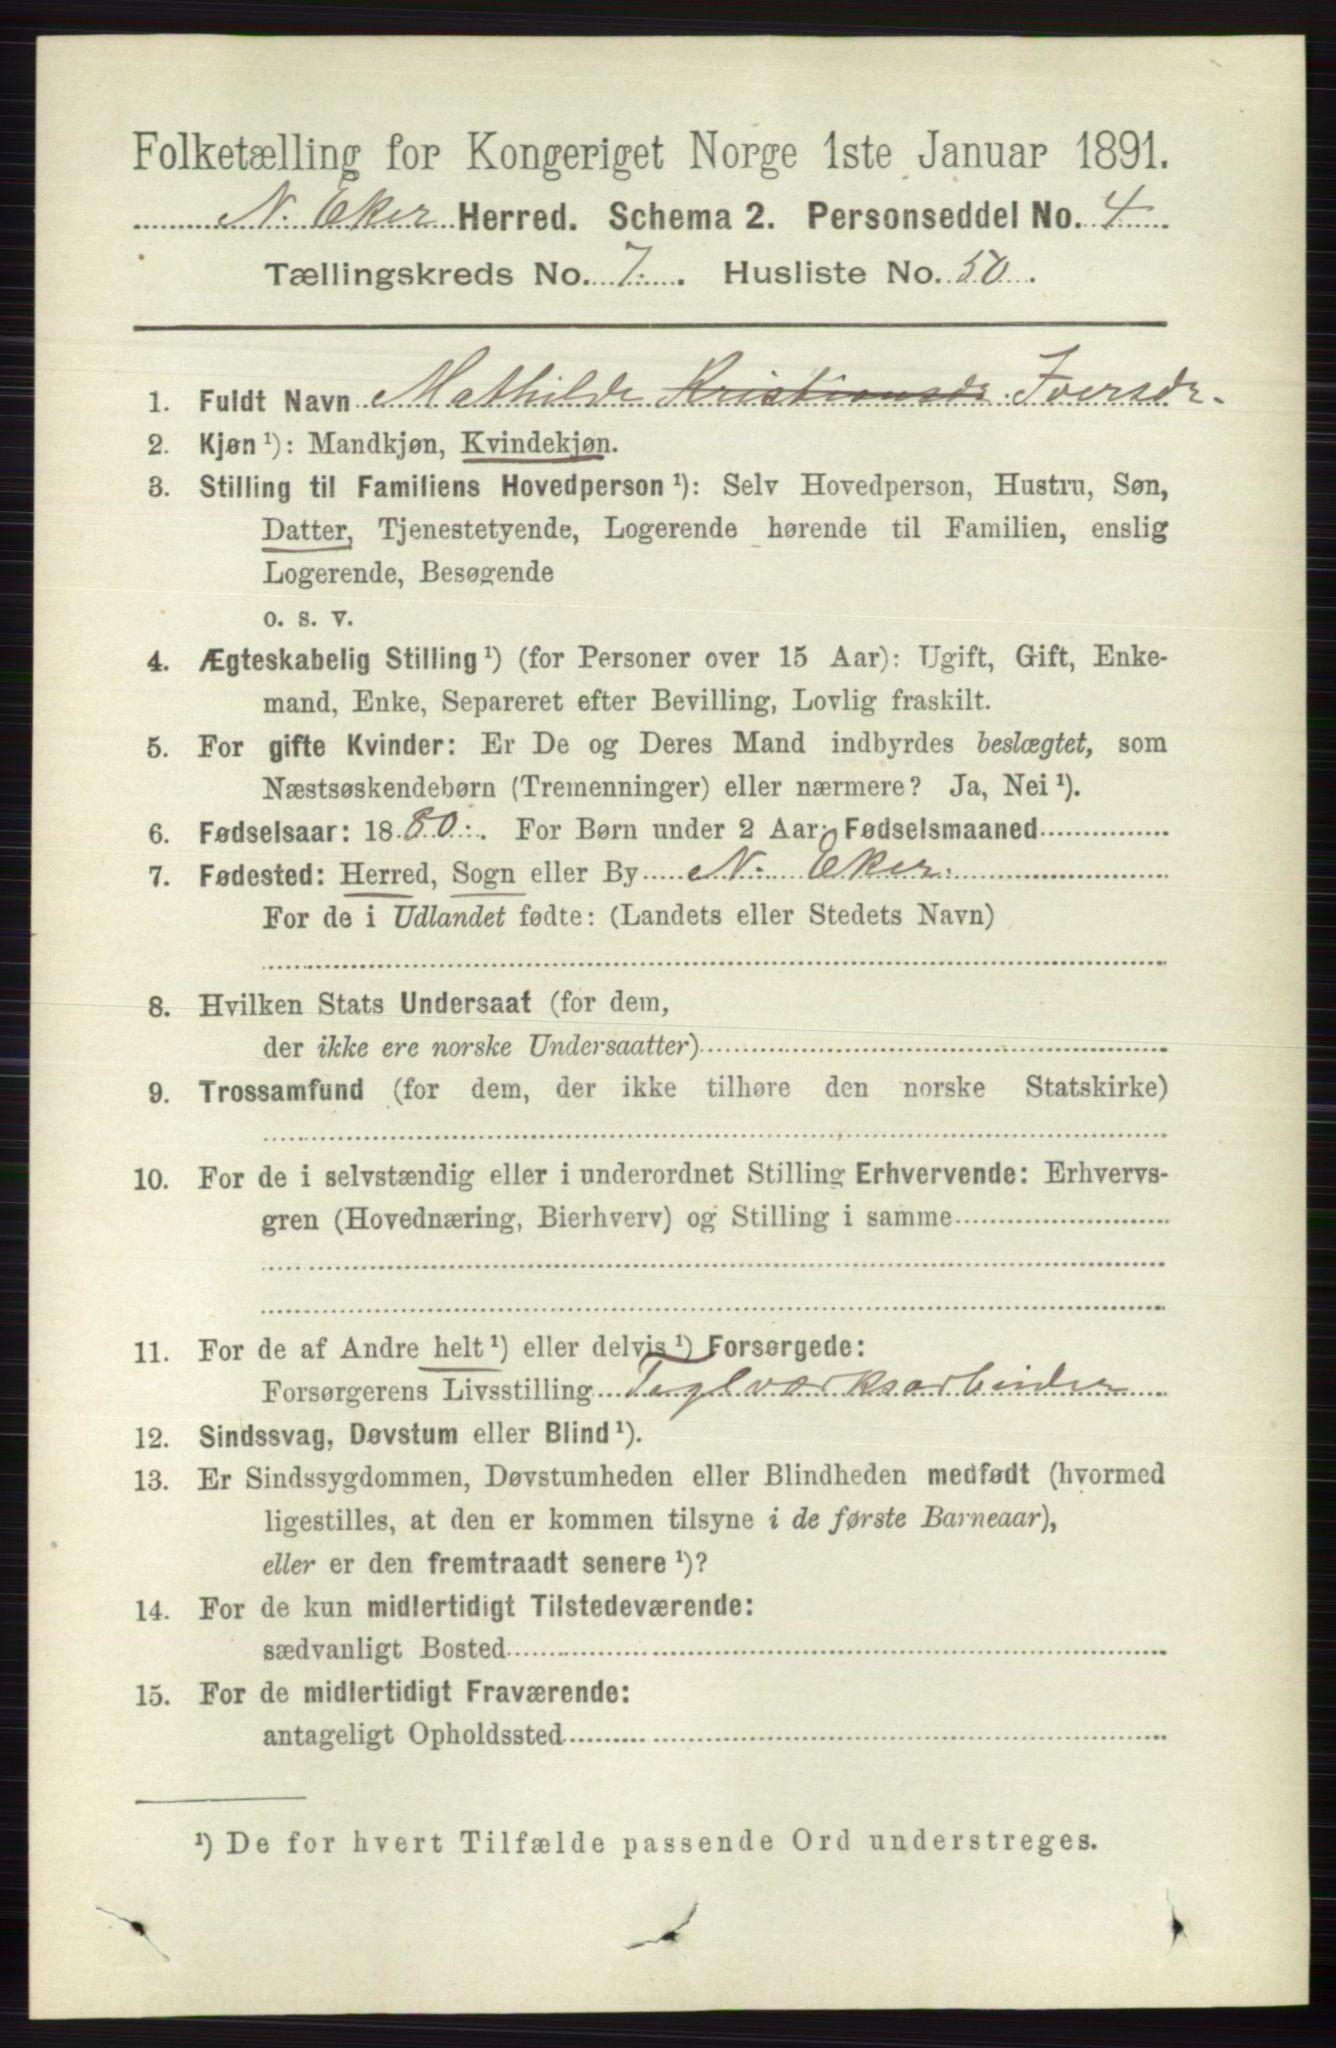 Folketælling for Kongeriget Norge 1ste Januar 1891.
N. Eker Herred. Schema 2. Personseddel No. 4
Tællingskreds No. 7. Husliste No. 50.
1. Fuldt Navn Mathilde Kristiansdr. Iversdr.
2. Kjøn ¹): Mandkjøn, Kvindekjøn.
3. Stilling til Familiens Hovedperson ¹): Selv Hovedperson, Hustru, Søn,
Datter, Tjenestetyende, Logerende hørende til Familien, enslig
Logerende, Besøgende
o. s. v.
4. Ægteskabelig Stilling ¹) (for Personer over 15 Aar): Ugift, Gift, Enke-
mand, Enke, Separeret efter Bevilling, Lovlig fraskilt.
5. For gifte Kvinder: Er De og Deres Mand indbyrdes beslægtet, som
Næstsøskendebørn (Tremenninger) eller nærmere? Ja, Nei ¹).
6. Fødselsaar: 1880. For Børn under 2 Aar: Fødselsmaaned
7. Fødested: Herred, Sogn eller By N. Eker.
For de i Udlandet fødte: (Landets eller Stedets Navn)
8. Hvilken Stats Undersaat (for dem,
der ikke ere norske Undersaatter)
9. Trossamfund (for dem, der ikke tilhøre den norske Statskirke)
10. For de i selvstændig eller i underordnet Stilling Erhvervende: Erhvervs-
gren (Hovednæring, Bierhverv) og Stilling i samme
11. For de af Andre helt ¹) eller delvis ¹) Forsørgede:
Forsørgerens Livsstilling Teglværksarbeider
12. Sindssvag, Døvstum eller Blind ¹).
13. Er Sindssygdommen, Døvstumheden eller Blindheden medfødt (hvormed
ligestilles, at den er kommen tilsyne i de første Barneaar),
eller er den fremtraadt senere ¹)?
14. For de kun midlertidigt Tilstedeværende:
sædvanligt Bosted
15. For de midlertidigt Fraværende:
antageligt Opholdssted
¹) De for hvert Tilfælde passende Ord understreges.